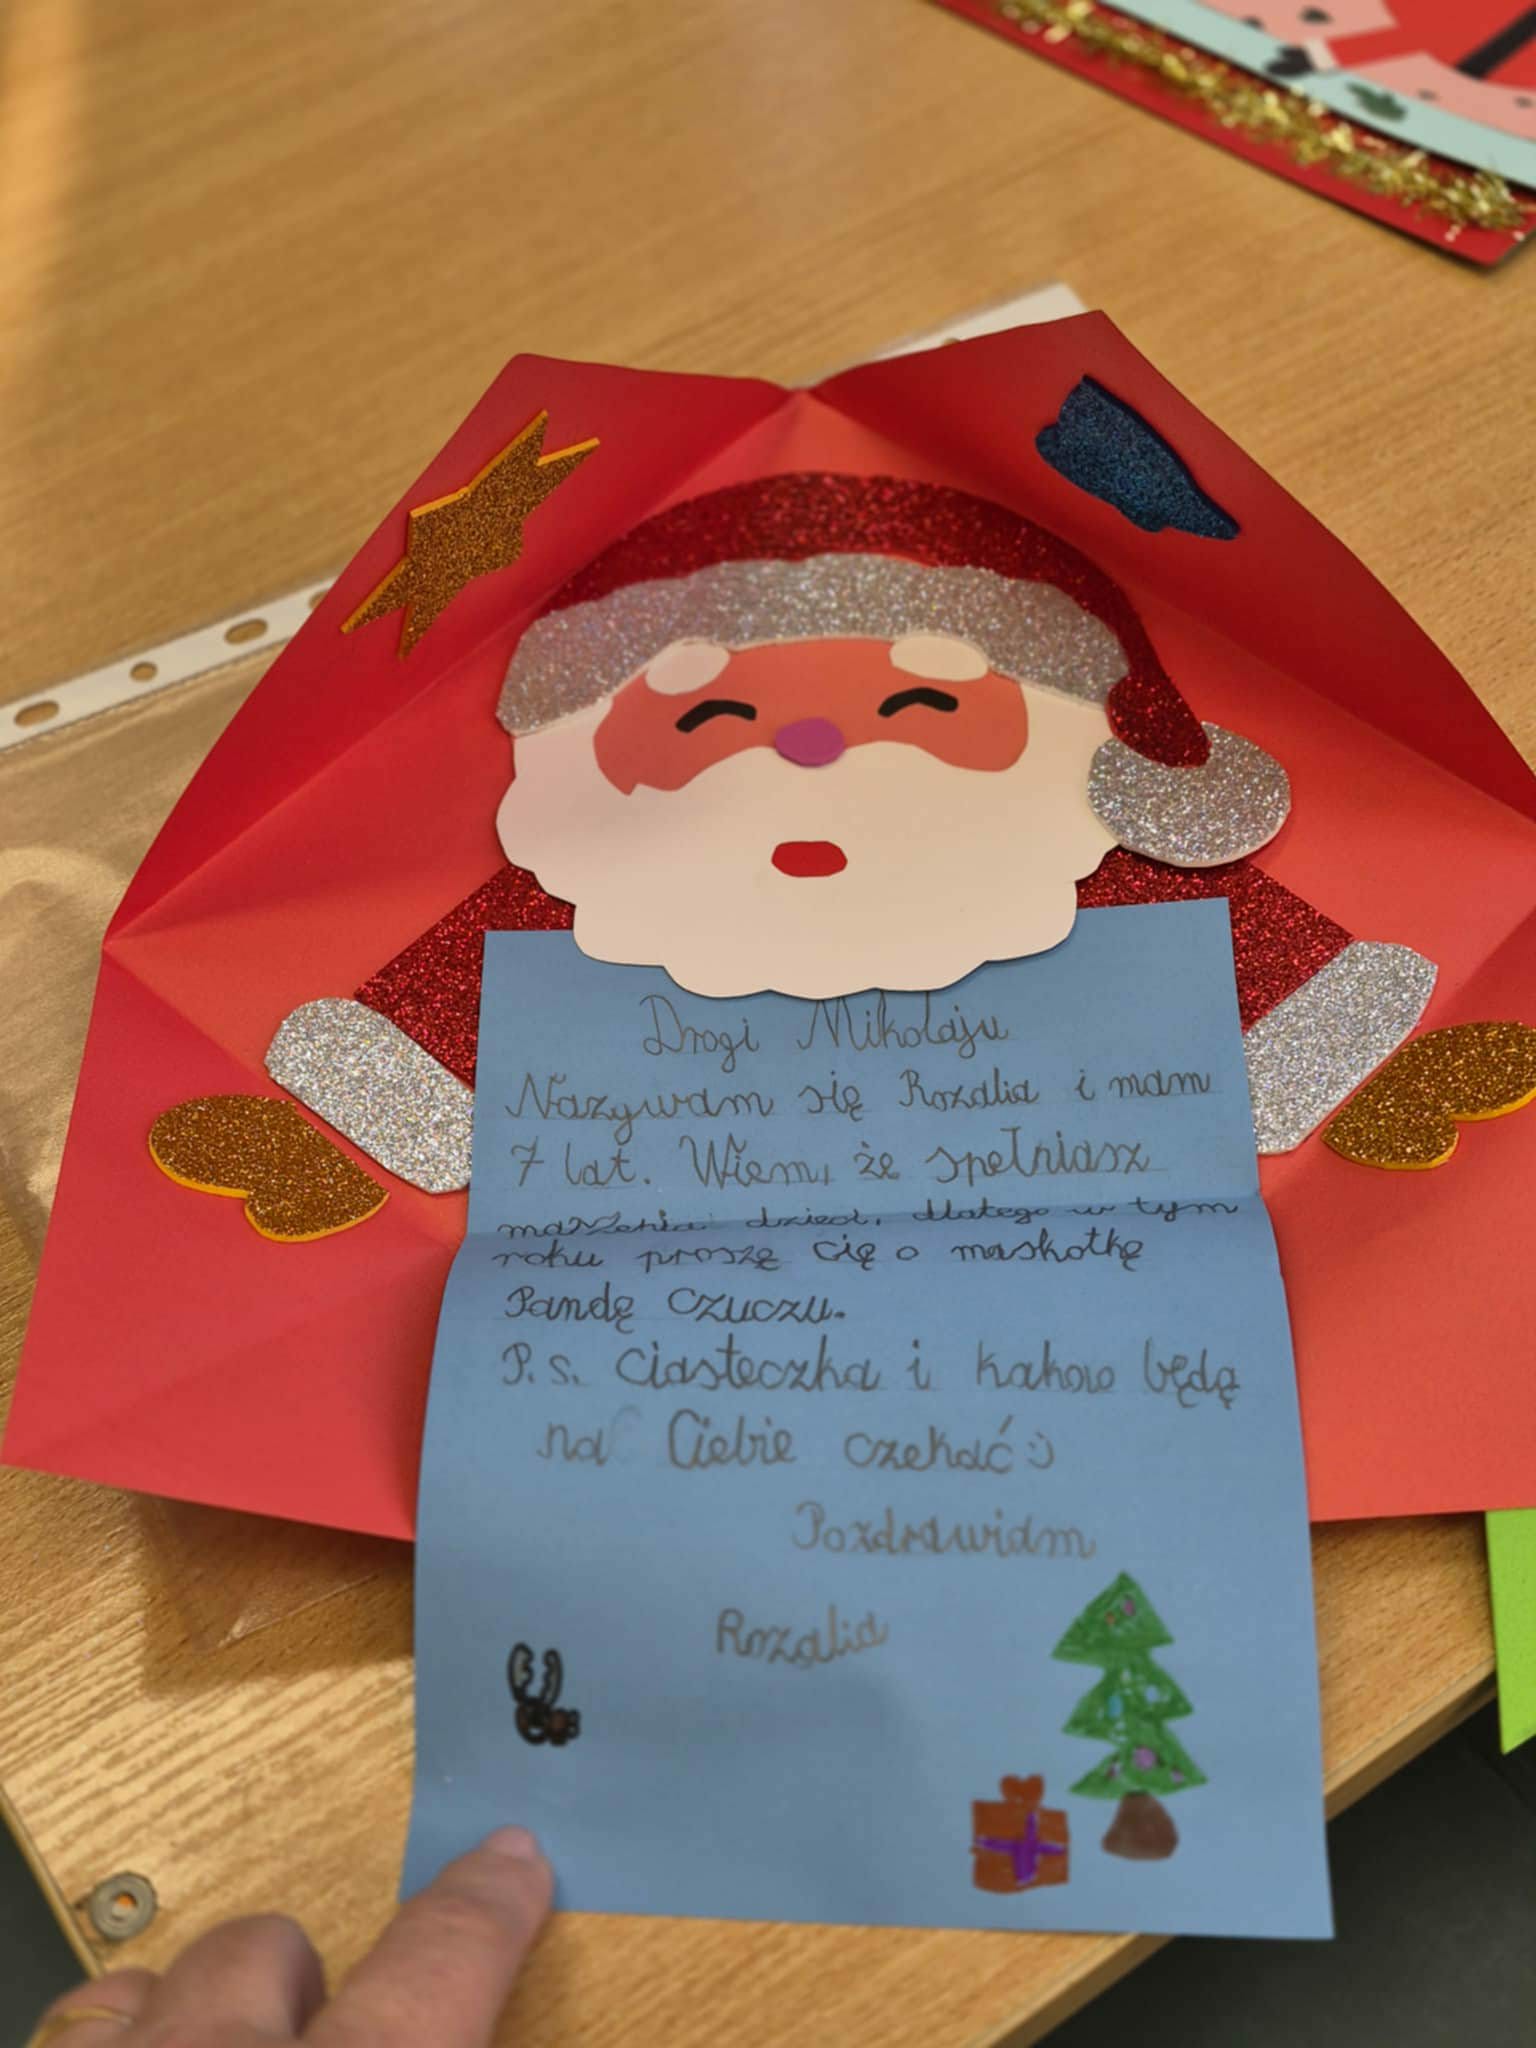 Drogi Mikołaju
Nazywam się Rozalia i mam
7 lat. Wiem, że spełniasz
marzenia dzieci, dlatego w tym
roku proszę cię o maskotkę
Pandę Czuczu.
P.s. Ciasteczka i kakao będą
na Ciebie czekać :)
Pozdrawiam
Rozalia